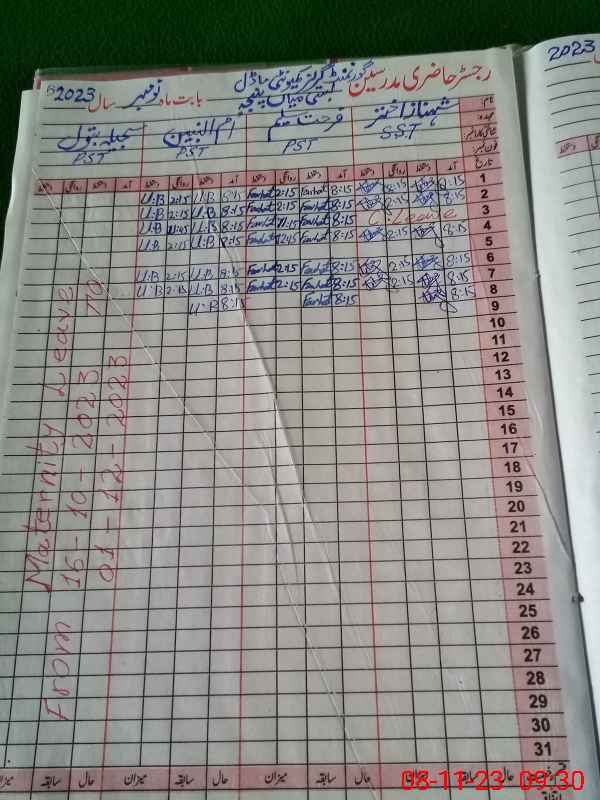 رجسٹر حاضری مدرسین گورنمنٹ گرلز کمیونٹی ماڈل
بابت ماہ نومبر سال 2023
2023
نام شہناز اختر فرحت ام البنین سجیلہ بتول
عہدہ SST PST PST PST
فون نمبر
تاریخ آمد دستخط روانگی دستخط آمد دستخط روانگی دستخط آمد دستخط روانگی دستخط آمد دستخط روانگی دستخط
U.B 2:15 U.B 8:15 Farhat 2:15 Farhat 8:15 2:15 8:15 1
U.B 2:15 U.B 8:15 Farhat 2:15 Farhat 8:15 2:15 8:15 2
U.B 11:45 U.B 8:15 Farhat 11:45 Farhat 8:15 C. Leave 3
U.B 2:15 U.B 8:15 Farhat 2:45 Farhat 8:15 2:15 8:15 4
5
U.B 2:15 U.B 8:15 Farhat 2:45 Farhat 8:15 2:15 8:15 6
U.B 2:15 U.B 8:15 Farhat 2:15 Farhat 8:15 2:15 8:15 7
U.B 8:15 Farhat 8:15 8:15 8
9
10
11
12
13
14
15
16
17
18
19
20
21
22
23
24
25
26
27
28
29
30
31
From Maternity Leave
16-10-2023 TO
01-12-2023
حال سابقہ میزان حال سابقہ میزان حال سابقہ میزان حال سابقہ میزان
08-11-23 09:30